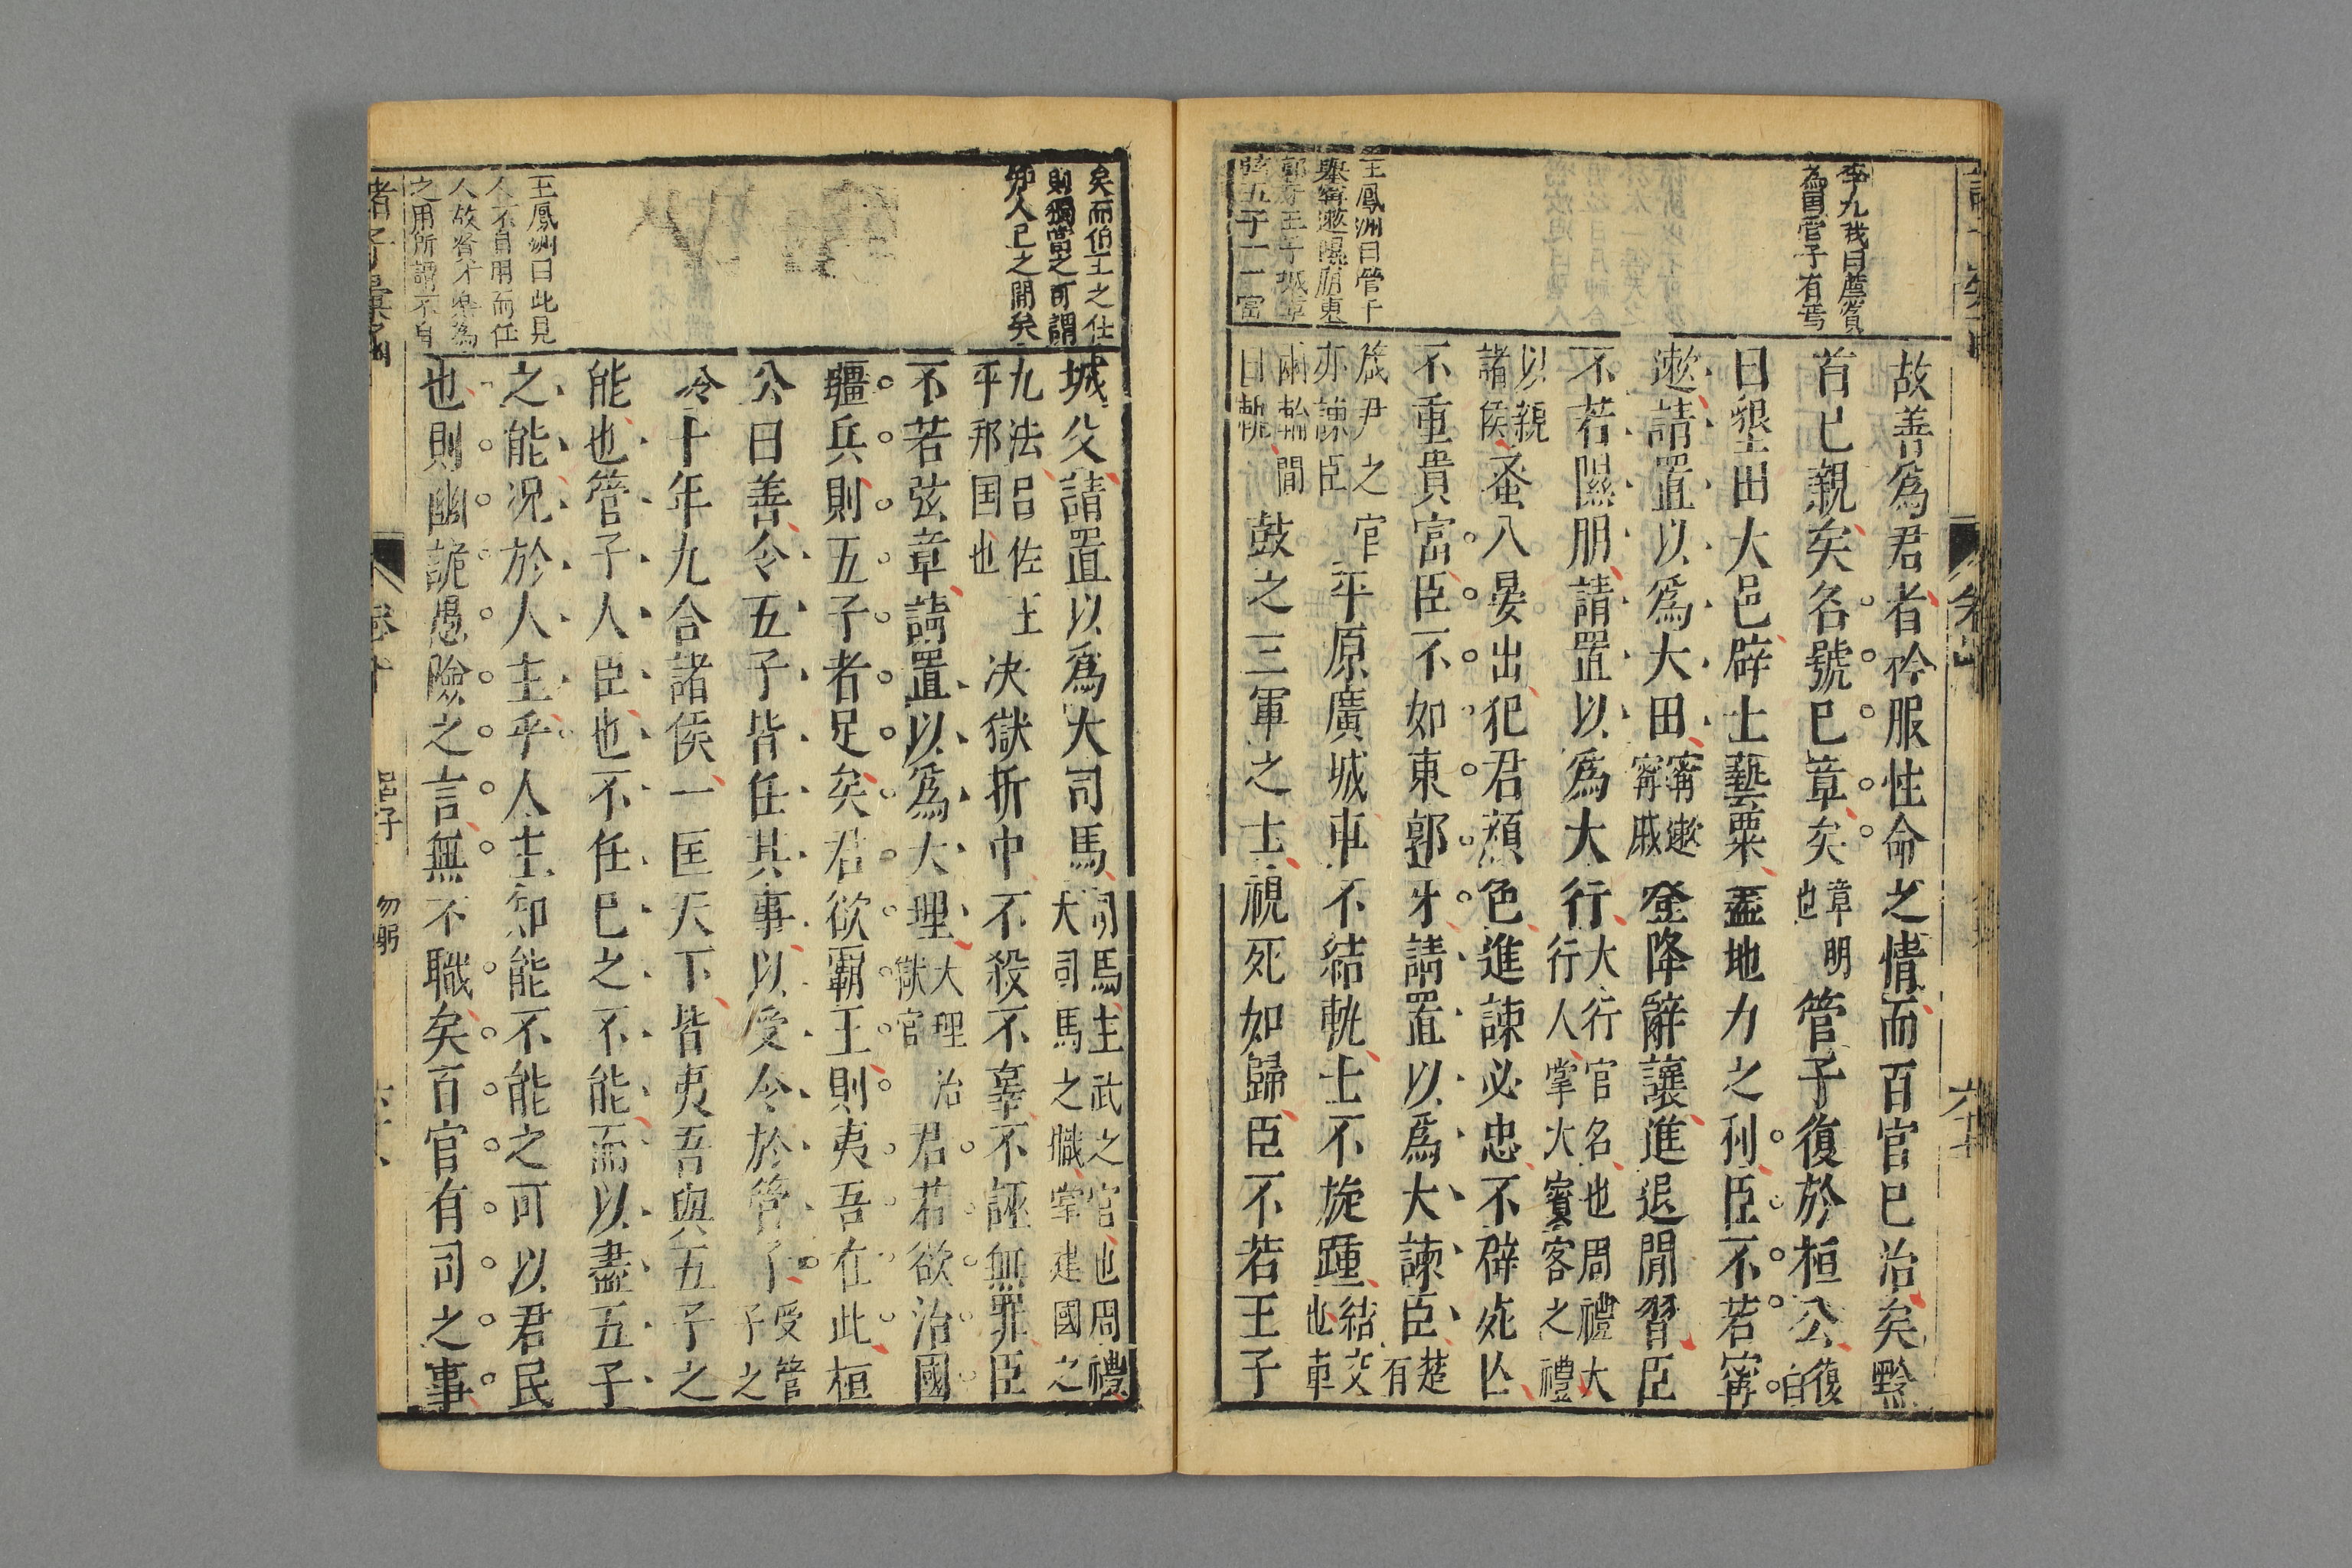 李九我曰薦賓
為國管子有焉
王鳳洲曰管子
舉甯遬隰朋東
郭牙王子城章
弦五子一一富
故善爲君者矜服性命之情而百官已治矣黔
首已親矣名號已章矣章明也管子復於桓公復白
曰墾田大邑辟土藝粟盡地力之利臣不若甯
遬請置以爲大田甯遬甯戚登降辭讓進退閒習臣
不若隰朋請置以爲大行大行官名也周禮大行人掌大賓客之禮
以親諸侯蚤入晏出犯君顏色進諫必忠不辟死亾
不重貴富臣不如東郭牙請置以爲大諫臣楚有
箴尹之官亦諫臣平原廣城車不結軌士不旋踵結交也車
兩輪間曰軌鼓之三軍之士視死如歸臣不若王子
矣而伯王之仕
則獨當之可謂
知人已之開矣
王鳳洲曰此見
人不自用而任
人故管牙樂為
之用所謂不自
城父請置以爲大司馬司馬主武之官也周禮大司馬之職掌建國之
九法吕佐王平邦国也决獄折中不殺不辜不誣無罪臣
不若弦章請置以爲大理大理治獄官君若欲治國
彊兵則五子者足矣君欲霸王則夷吾在此桓
公曰善令五子皆任其事以受令於管子受管子之
令十年九合諸侯一匡天下皆夷吾與五子之
能也管子人臣也不任已之不能而以盡五子
之能况於人主乎人主知能不能之可以君民
也則幽詭愚險之言無不職矣百官有司之事
諸子彙函 卷十 呂子 勿躬